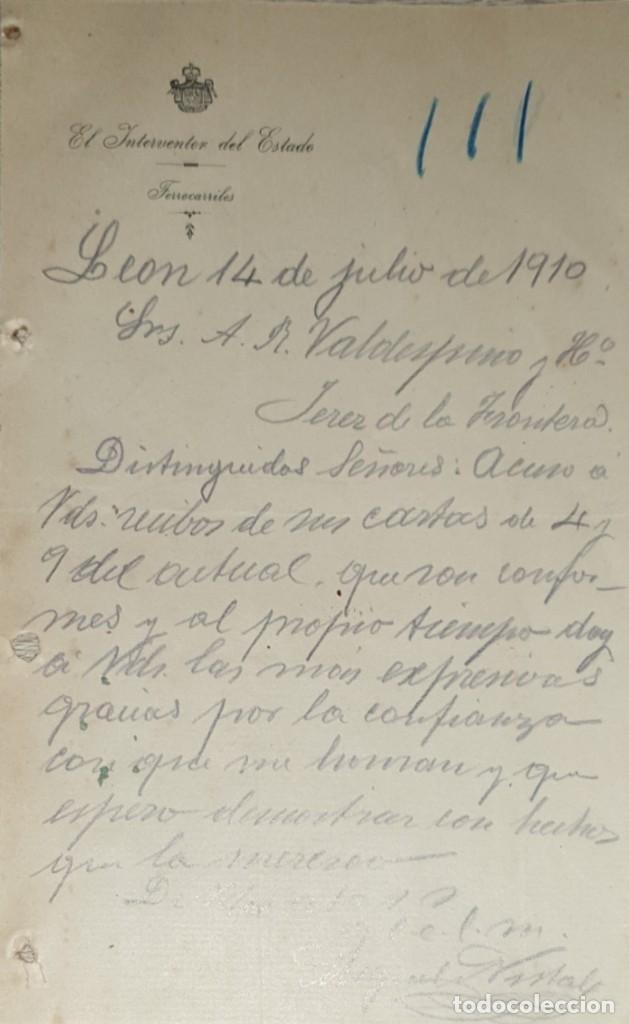 111
El Interventor del Estado
Ferrocarriles
Leon 14 de julio de 1910
Srs. A. R. Valdespino y Hº
Jerez de la Frontera.
Distinguidos Señores: Acuso á
Vds. recibos de sus cartas de 4 y
9 del actual, que son confor-
mes y al propio tiempo doy
á Vds. las más expresivas
gracias por la confianza
con que me honran y que
espero demostrar con hechos
que la merezco
De Vds.
q. b. s. m.
todocoleccion